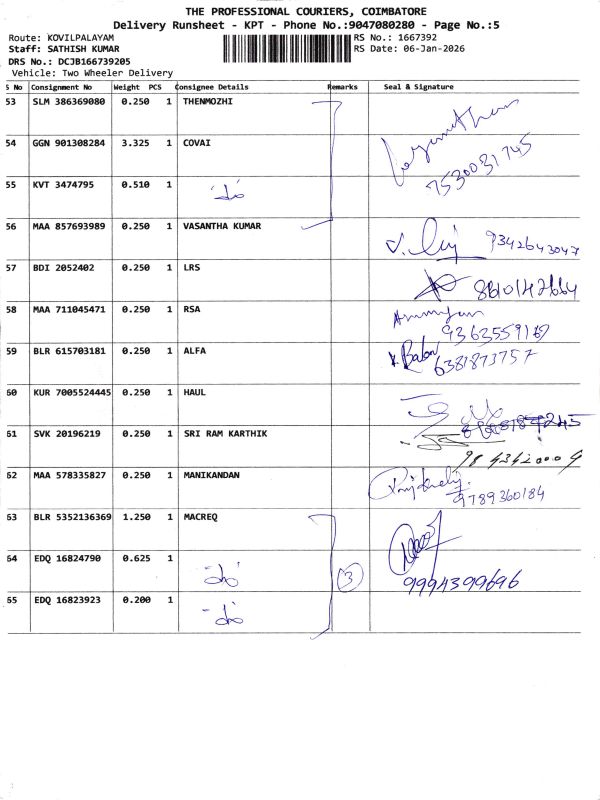 THE PROFESSIONAL COURIERS, COIMBATORE
Delivery Runsheet - KPT - Phone No.:9047080280 - Page No.:5
Route: KOVILPALAYAM
RS No.: 1667392
Staff: SATHISH KUMAR
RS Date: 06-Jan-2026
DRS No.: DCJB166739205
Vehicle: Two Wheeler Delivery
S No Consignment No Weight PCS Consignee Details Remarks Seal & Signature
53 SLM 386369080 0.250 1 THENMOZHI
54 GGN 901308284 3.325 1 COVAI
7530031745
55 KVT 3474795 0.510 1
56 MAA 857693989 0.250 1 VASANTHA KUMAR
9342643047
57 BDI 2052402 0.250 1 LRS
58 MAA 711045471 0.250 1 RSA
59 BLR 615703181 0.250 1 ALFA
6381873757
60 KUR 7005524445 0.250 1 HAUL
61 SVK 20196219 0.250 1 SRI RAM KARTHIK
62 MAA 578335827 0.250 1 MANIKANDAN
9789360184
63 BLR 5352136369 1.250 1 MACREQ
64 EDQ 16824790 0.625 1
3
9994399696
65 EDQ 16823923 0.200 1